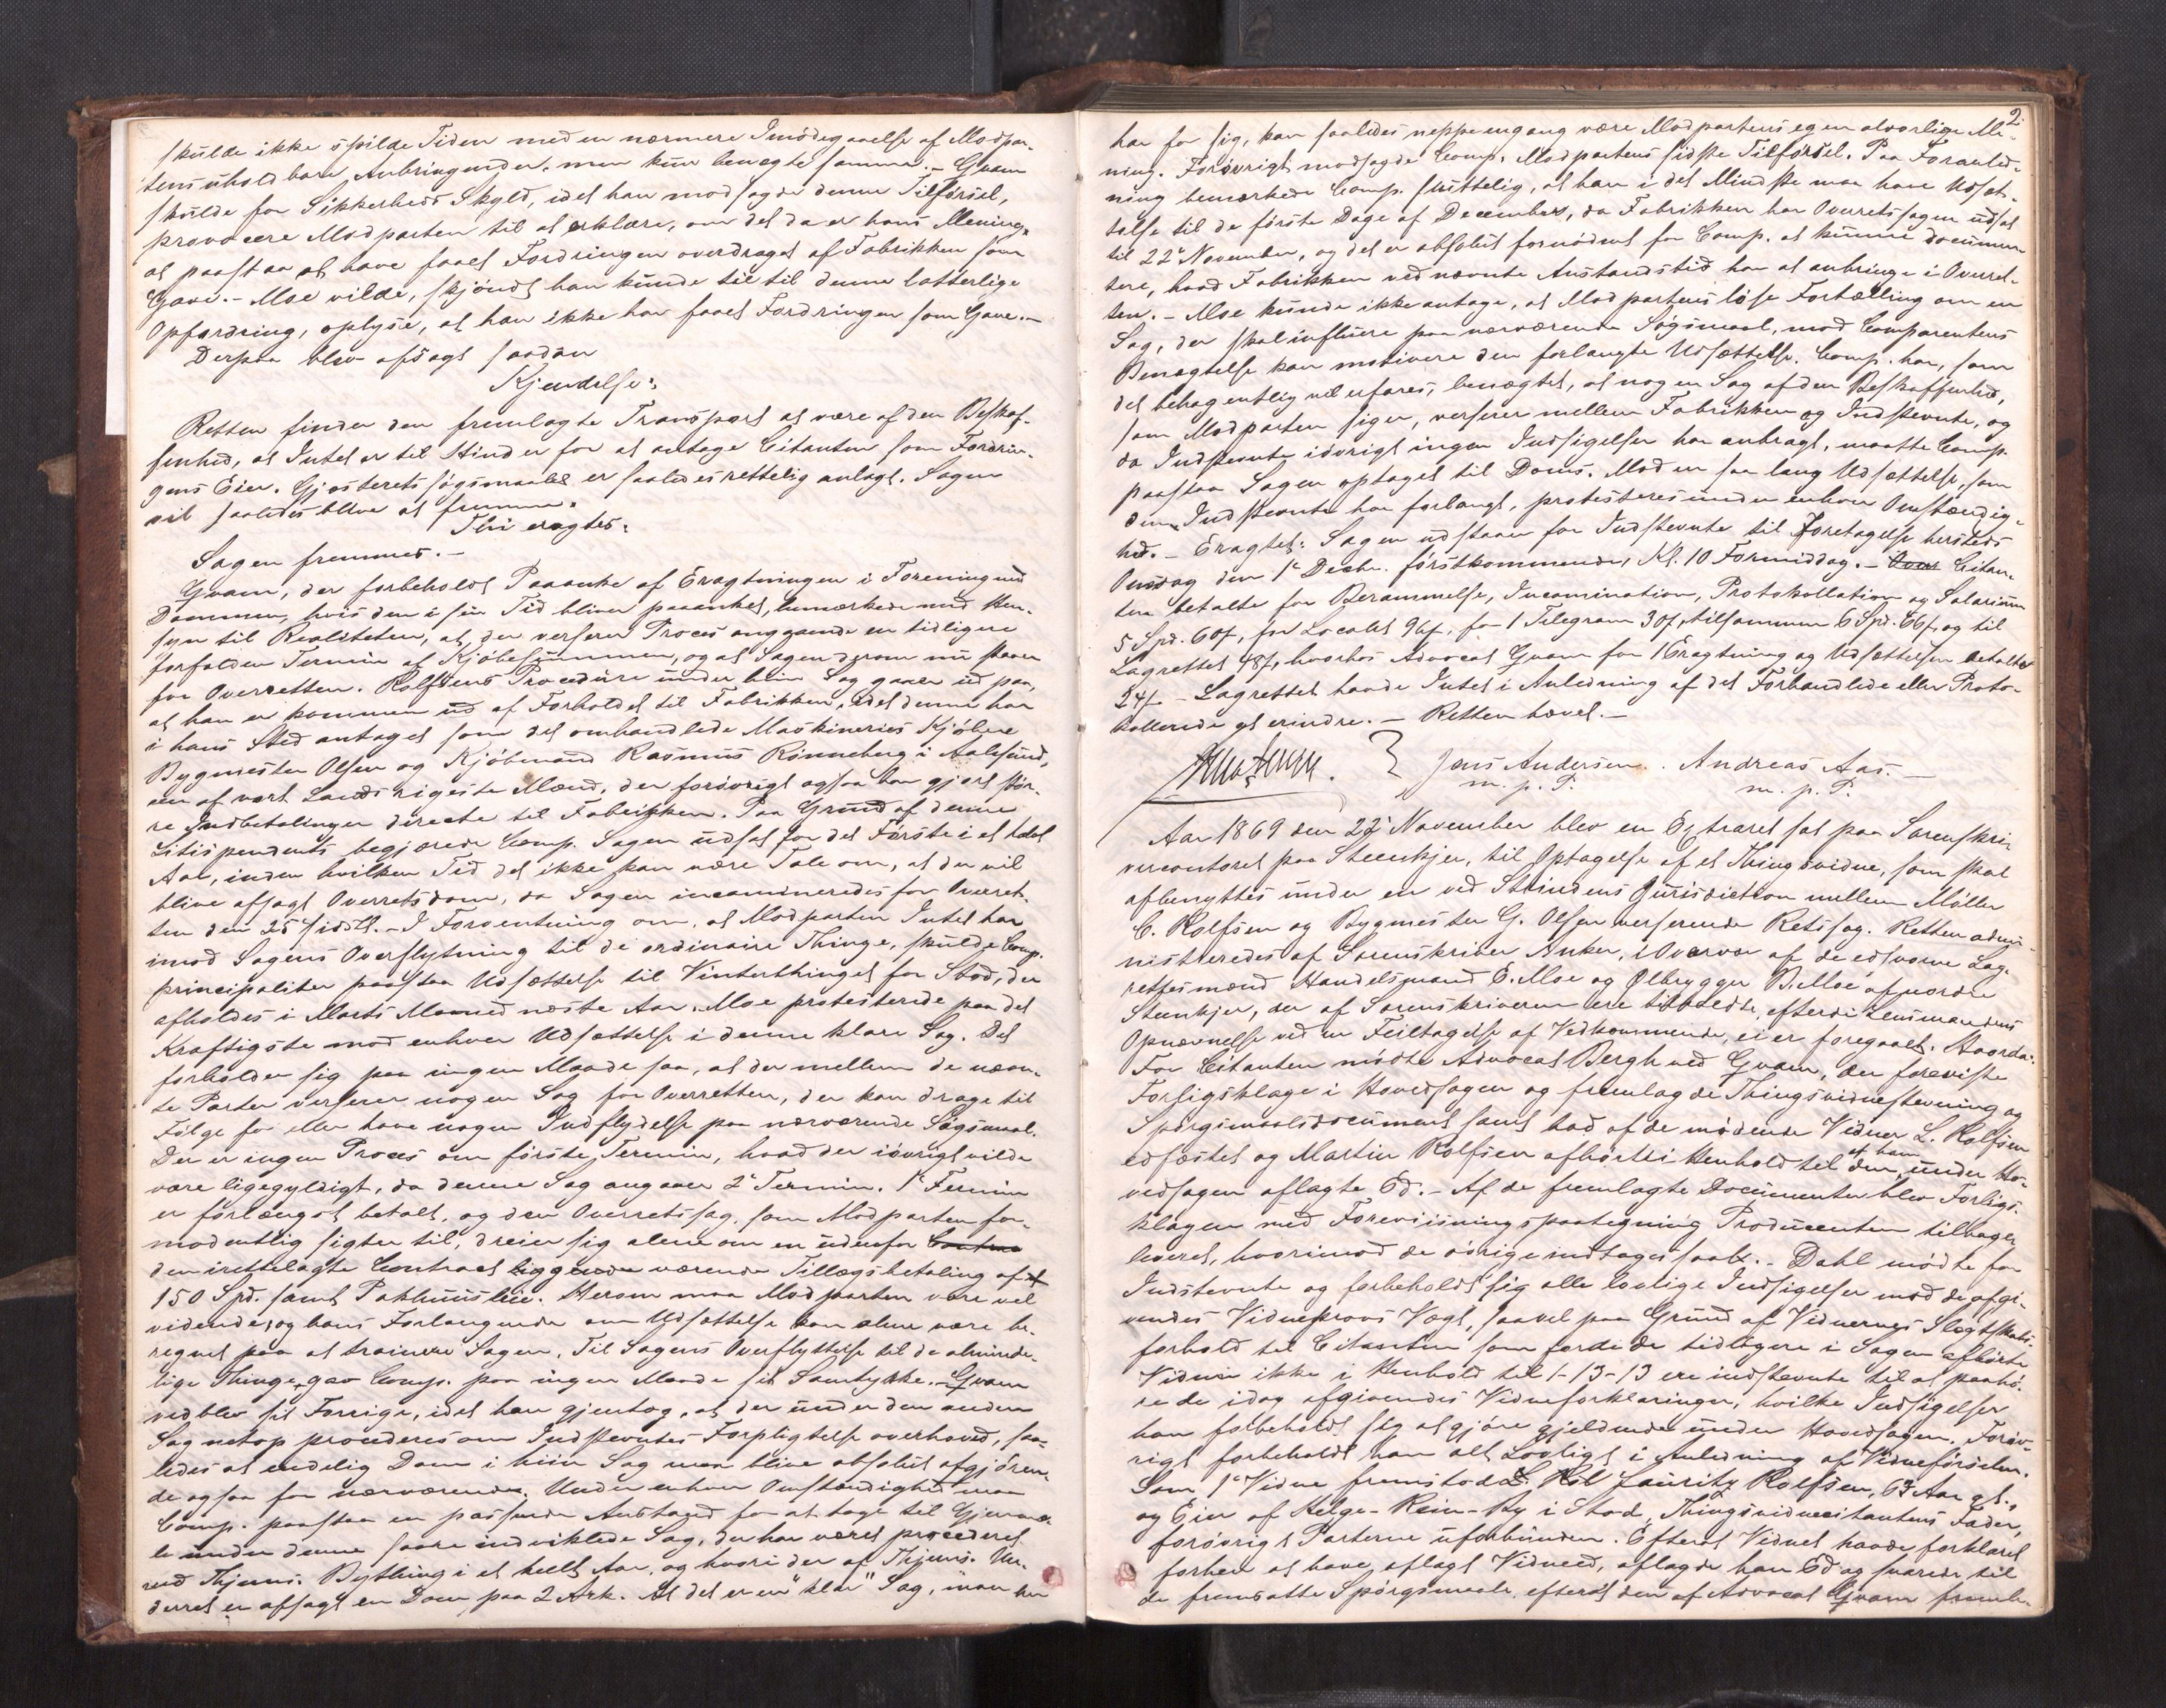 skulde ikke spilde Tiden med en nærmere Imødegaaelse af Modpar-
tens uholdbare Anbringender, men kun benægte samme. - Gram
skulde for Sikkerheds Skyld, idet han modsagde denne Tilførsel,
provocere Modparten til at erklære, om det da er hans Mening,
at paastaa at have faaet Fordringen overdraget af Fabrikken som
Gave. - Moe vilde, skjøndt han kunde tie til denne latterlige
Opfordring, oplyse, at han ikke har faaet Fordringen som Gave. -
Derpaa blev afsagt saadan
Kjendelse:
Retten finder den fremlagte Transport at være af den Beskaf-
fenhed, at Intet er til Hinder for at antage Citanten som Fordrin-
gens Eier. Gjæsterets søgsmaalet er saaledes rettelig anlagt. Sagen
vil saaledes blive at fremme.
Thi eragtes:
Sagen fremmes. -
Gram, der forbeholdt Paaanke af Eragtningen i Forening med
Dommen, hvis den i sin Tid bliver paaanket, bemærkede med Hen-
syn til Realiteten, at der verserer Proces angaaende en tidligere
forfalden Termin af Kjøbesummen, og at Sagen derom nu staar
for Overretten. Rolfsens Procedure under hiin Sag gaaer ud paa,
at han er kommen ud af Forholdet til Fabrikken, idet denne har
i hans Sted antaget som det omhandlede Maskineries Kjøbere
Bygmester Olsen og Kjøbmand Rasmus Rönneberg i Aalesund,
een af vort Lands rigeste Mænd, der forøvrigt ogsaa har gjort stør-
re Indbetalinger directe til Fabrikken. Paa Grund af denne
Litispendents begjærede Comp. Sagen udsat for det Første i et halvt
Aar, inden hvilken Tid det ikke kan være Tale om, at der vil
blive afsagt Overretsdom, da Sagen incamineredes for Overret-
ten den 25 sidstl. - I Forventning om, at Modparten Intet har
imod Sagens Overflytning til de ordinaire Thinge, skulde Comp.
principaliter paastaa Udsættelse til Vinterthinget for Stod, der
afholdes i Marts Maaned næste Aar. Moe protesterede paa det
Kraftigste mod enhver Udsættelse i denne klare Sag. Det
forholder sig paa ingen Maade saa, at der mellem de nævn-
te Parter verserer nogen Sag for Overretten, der kan drage til
Følge for eller have nogen Indflydelse paa nærværende Søgsmaal.
Der er ingen Proces om første Termin, hvad der iøvrigt vilde
være ligegyldigt, da denne Sag angaaer 2den Termin. 1ste Termin
er forlængst betalt, og den Overretssag, som Modparten for-
modentlig sigter til, dreier sig alene om en udenfor
den irettelagte Contract værende Tillægsbetaling af
150 Spd. samt Pakhuusleie. Herom maa Modparten være vel
vidende, og hans Forlangende om Udsættelse kan alene være be-
regnet paa at trainere Sagen. Til Sagens Overflyttelse til de alminde-
lige Thinge, gav Comp. paa ingen Maade sit Samtykke. - Gram
vedblev sit Forrige, idet han gjentog, at der under den anden
Sag netop procederes om Indstevntes Forpligtelse overhoved, saa-
ledes at endelig Dom i hiin Sag maa blive absolut afgjøren-
de ogsaa for nærværende. Under enhver Omstændighed maa
Comp. paastaa en passende Anstand for at tage til Gjenmæ-
le under denne saare indviklede Sag, der har været procederet
ved Thjems. Bything i et heelt Aar, og hvori der af Thjems. Un-
derret er afsagt en Dom paa 2 Ark. At det er en "klar" Sag, man her
2.
har for sig, kan saaledes neppe engang være Modpartens egen alvorlige Me-
ning. Forøvrigt modsagde Comp. Modpartens sidste Tilførsel. Paa Foranled-
ning bemærkede Comp. sluttelig, at han i det Mindste maa have Udsæt-
telse til de første Dage af December, da Fabrikken har Overretssagen udsat
til 22de November, og det er absolut fornødent for Comp. at kunne documen-
tere, hvad Fabrikken ved nævnte Anstandstid har at anbringe i Overret-
ten. - Moe kunde ikke antage, at Modpartens løse Fortælling om en
Sag, der skal influere paa nærværende Søgsmaal, mod Comparentens
Benægtelse kan motivere den forlangte Udsættelse. Comp. har, som
det behagentlig vil erfares, benægtet, at nogen Sag af den Beskaffenhed,
som Modparten siger, verserer mellem Fabrikken og Indstevnte, og
da Indstevnte iøvrigt ingen Indsigelser har anbragt, maatte Comp.
paastaa Sagen optaget til Doms. Mod en saa lang Udsættelse, som
den Indstevnte har forlangt, protesteres under enhver Omstændig-
hed. - Eragtet: Sagen udstaar for Indstevnte til Foretagelse hersteds
Onsdag den 1ste Decbr. førstkommende, Kl. 10 Formiddag. - Citan-
ten betalte for Berammelse, Incamination, Protokollation og Salarium
5 Spd. 60 s, for Localet 96 s, for 1 Telegram 30 s, tilsammen 6 Spd. 66 s, og til
Lagrettet 48 s, hvorhos Advocat Gram for 1 Eragtning og Udsættelsen betalte
24 s - Lagrettet havde Intet i Anledning af det Forhandlede eller Proto-
kollerede at erindre. - Retten hævet. -
Jens Andersen. Andreas Aas. -
m. p. P. m. p. P.
Aar 1869 den 22de November blev en Extraret sat paa Sorenskri-
vercontoret paa Steenkjer, til Optagelse af et Thingsvidne, som skal
afbenyttes under en ved Strindens Jurisdiction mellem Møller
C. Rolfsen og Bygmester G. Olsen verserende Retssag. Retten admi-
nistreredes af Sorenskriver Anker, i Overvær af de edsvorne Lag-
rettesmænd Handelsmand E. Moe og Ølbrygger B. Moe af nordre
Steenkjer, der af Sorenskriveren ere tilkaldte, efterdi Lensmandens
Opnævnelse ved en Feiltagelse af Vedkommende, ei er foregaaet. Hvorda:
For Citanten mødte Advocat Bergh ved Gram, der foreviste
Forligsklage i Hovedsagen og fremlagde Thingsvidnestevning og
Spørgsmaalsdocument samt bad af de mødende Vidner L. Rolfsen
edfæstet og Martin Rolfsen afhørt i Henhold til den af ham under Ho-
vedsagen aflagte Ed. - Af de fremlagte Documenter blev Forligs-
klagen med Foreviisningspaategning Producenten tilbage-
leveret, hvorimod de øvrige indtages saal. - Dahl mødte for
Indstevnte og forbeholdt sig alle lovlige Indsigelser mod de afgi-
vendes Vidneprovs Vægt, saavel paa Grund af Vidnernes Slægtskabs-
forhold til Citanten som fordi de tidligere i Sagen afhørte
Vidner ikke i Henhold til 1-13-13 ere indstevnte til at paahø-
re de idag afgivendes Vidneforklaringer, hvilke Indsigelser
han forbeholdt sig at gjøre gjeldende under Hovedsagen. Forøv-
rigt forbeholdt han alt Lovligt i Anledning af Vidneførselen.
Som 1ste Vidne fremstod Lauritz Rolfsen, 63 Aar gl.,
og Eier af Helge-Rein-By i Stod, Thingsvidnecitantens Fader,
forøvrigt Parterne uforbunden. Efterat Vidnet havde forklaret
forhen at have aflagt Vidneed, aflagde han Ed og svarede til
de fremsatte Spørgsmaale, efterat den af Advocat Gram fremla-